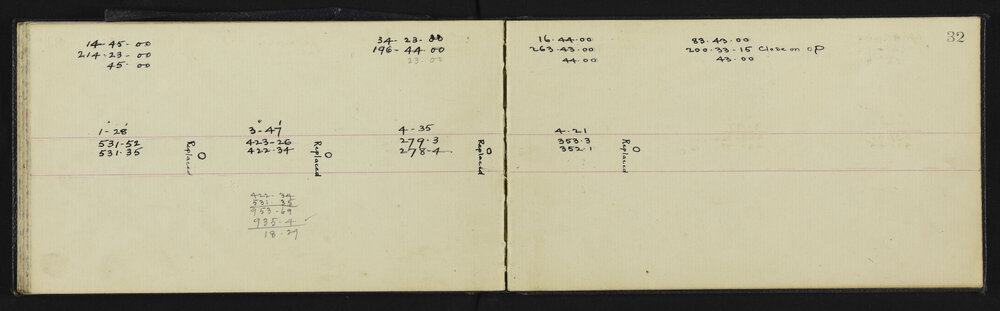 32
14-45-00
214-23-00
45-00
34-23-00
196-44-00
23-00
16.44.00
263.43.00
44.00
83.43.00
200.33-15 Close on OP
43.00
1-28
531-52
531.35
Replaced
3-47
423-26
422.34
Replaced
4-35
279.3
278-4
Replaced
4.21
353.3
352.1
Replaced
422-34
531 35
953-69
935-4
18.29